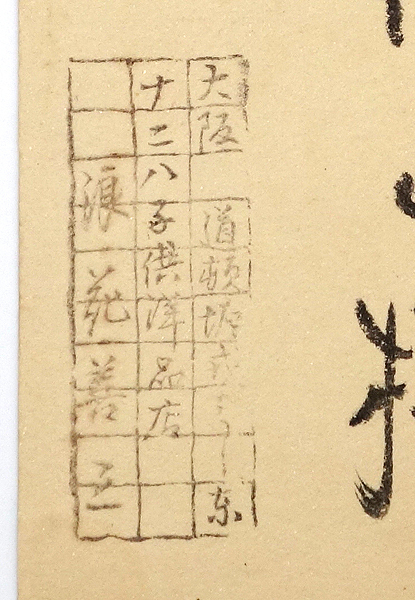 大阪 道頓堀 东
十二八子供洋品店
浪花善